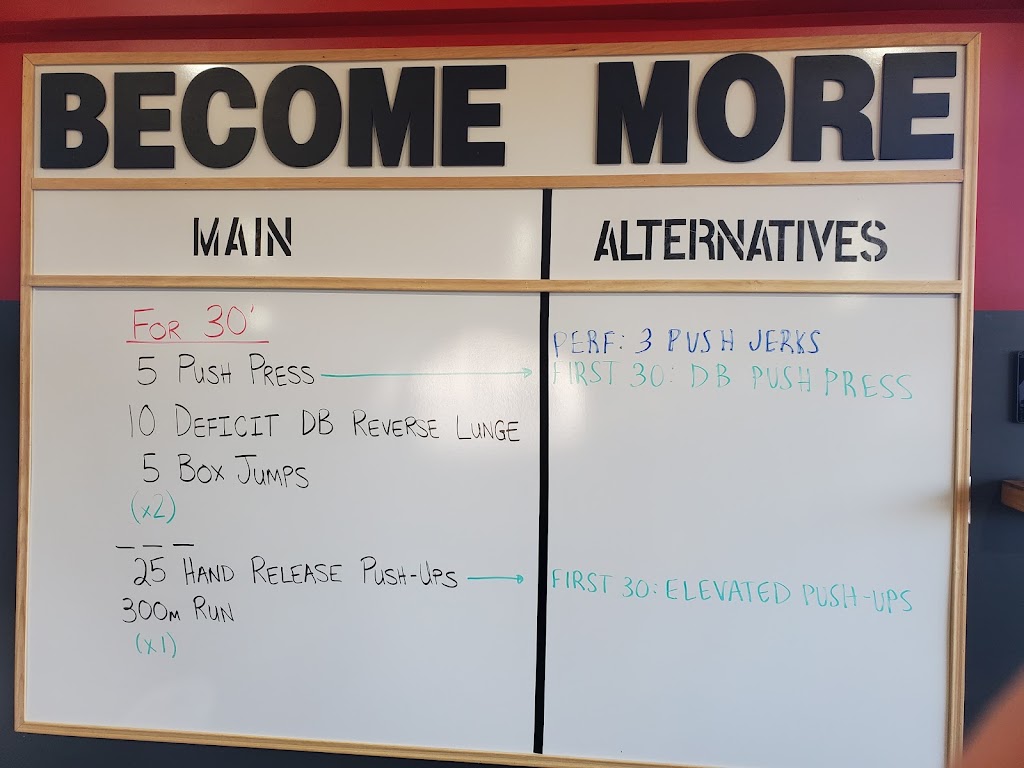 BECOME MORE
MAIN
ALTERNATIVES
FOR 30'
5 PUSH PRESS
10 DEFICIT DB REVERSE LUNGE
5 BOX JUMPS
(x2)
25 HAND RELEASE PUSH-UPS
300M RUN
(x1)
PERF: 3 PUSH JERKS
FIRST 30: DB PUSH PRESS
FIRST 30: ELEVATED PUSH-UPS